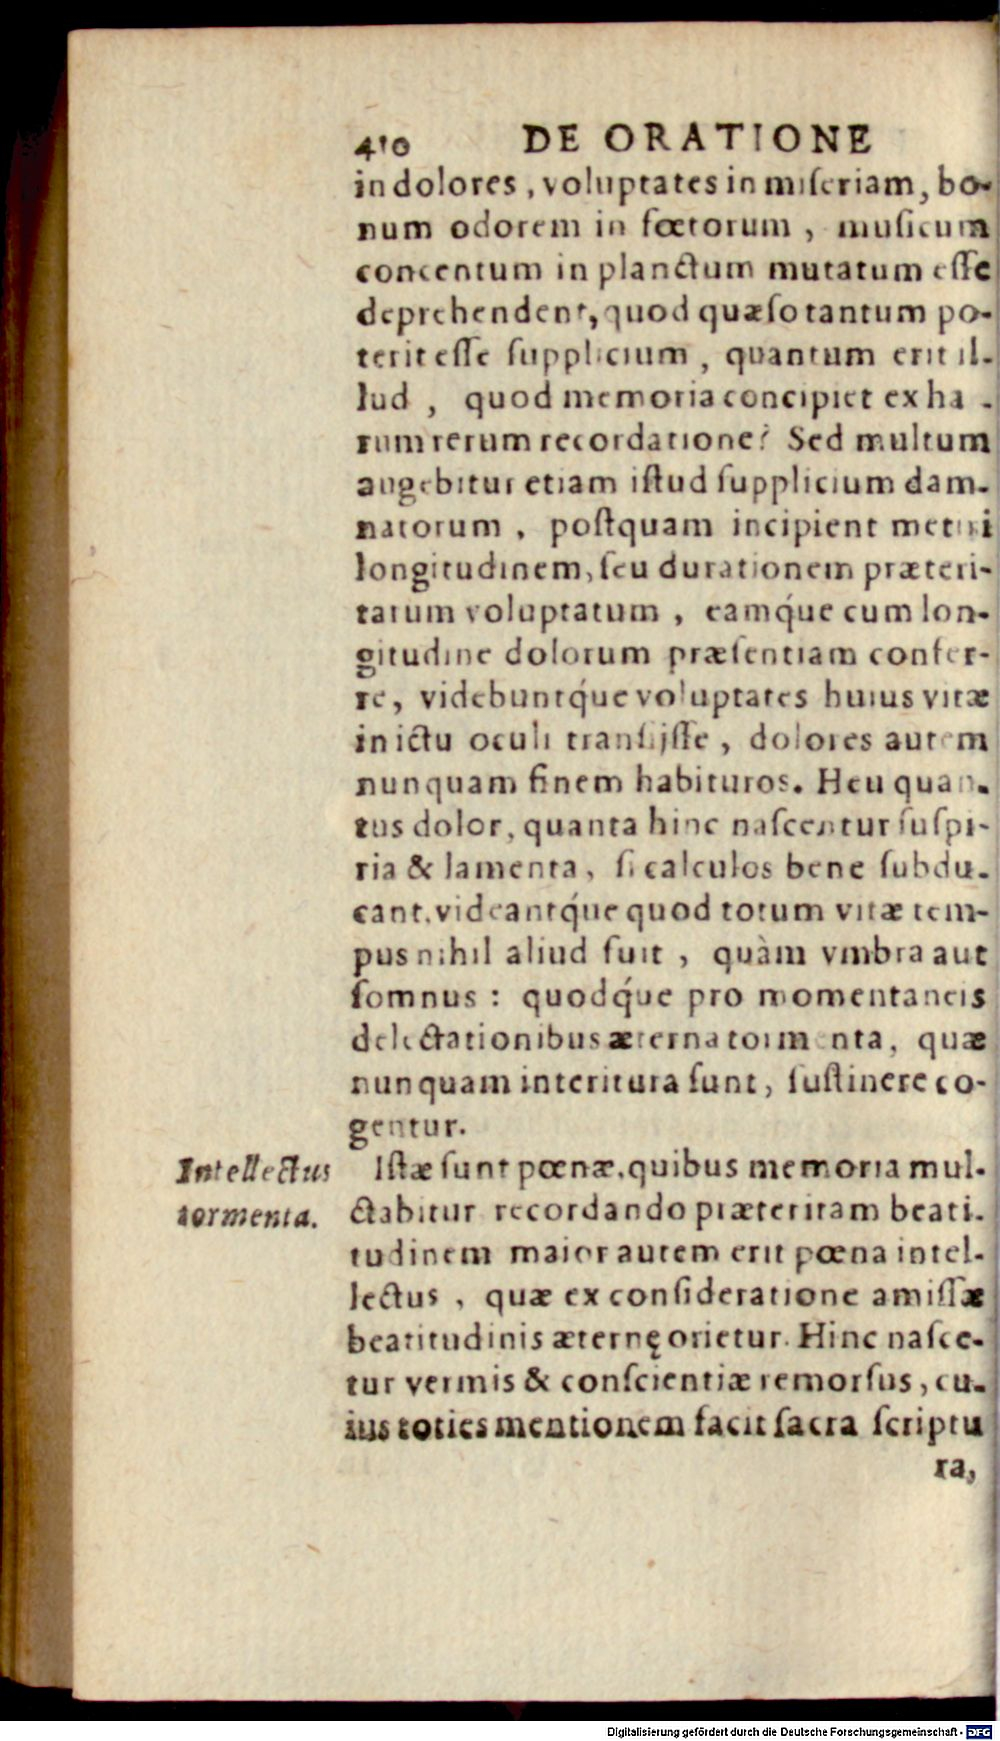 410 DE ORATIONE
in dolores, voluptates in miſeriam, bo-
num odorem in fœtorum, muſicum
concentum in planctum mutatum eſſe
deprehendent, quod quæſo tantum po-
terit eſſe ſupplicium, quantum erit il-
lud, quod memoria concipiet ex ha-
rum rerum recordatione? Sed multum
augebitur etiam iſtud ſupplicium dam-
natorum, poſtquam incipient metiri
longitudinem, ſeu durationem præteri-
tarum voluptatum, eamq́ue cum lon-
gitudine dolorum præſentiam confer-
re, videbuntq́ue voluptates huius vitæ
in ictu oculi tranſijſſe, dolores autem
nunquam finem habituros. Heu quan-
tus dolor, quanta hinc naſcentur ſuſpi-
ria & lamenta, ſi calculos bene ſubdu-
cant, videantq́ue quod totum vitæ tem-
pus nihil aliud fuit, quàm vmbra aut
ſomnus: quodq́ue pro momentaneis
delectationibus æterna tormenta, quæ
nunquam interitura ſunt, ſuſtinere co-
gentur.
Intellectus
tormenta.
Iſtæ ſunt pœnæ, quibus memoria mul-
ctabitur recordando præteritam beati-
tudinem maior autem erit pœna intel-
lectus, quæ ex conſideratione amiſſæ
beatitudinis æternę orietur. Hinc naſce-
tur vermis & conſcientiæ remorſus, cu-
ius toties mentionem facit ſacra ſcriptu
ra,
Digitalisierung gefördert durch die Deutsche Forschungsgemeinschaft - DFG